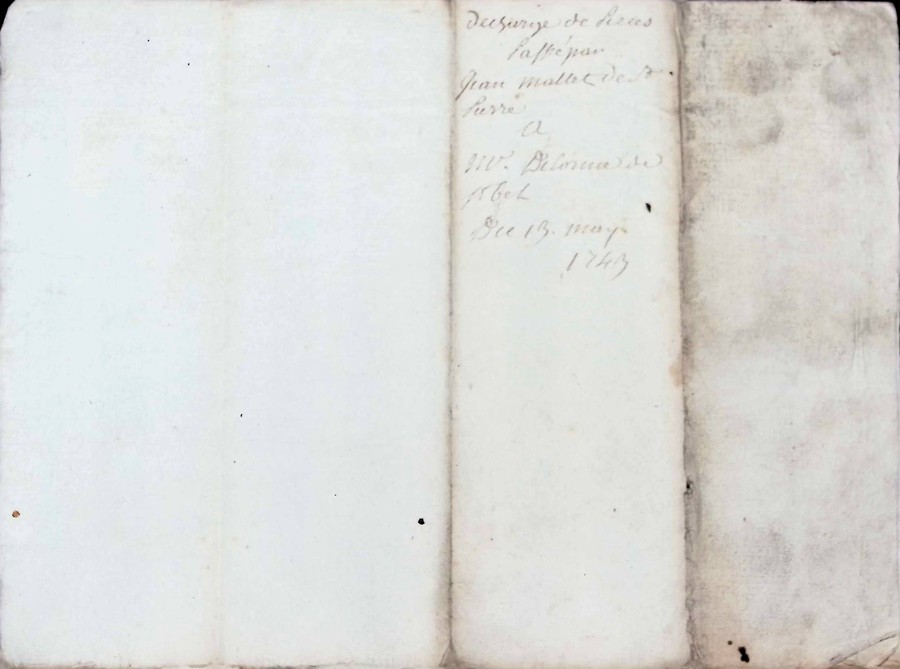 Decharge de Pieces
Passé par
Jean Mallet de St
Pierre
A
Mr. Delorme de
Du 13. may
1743